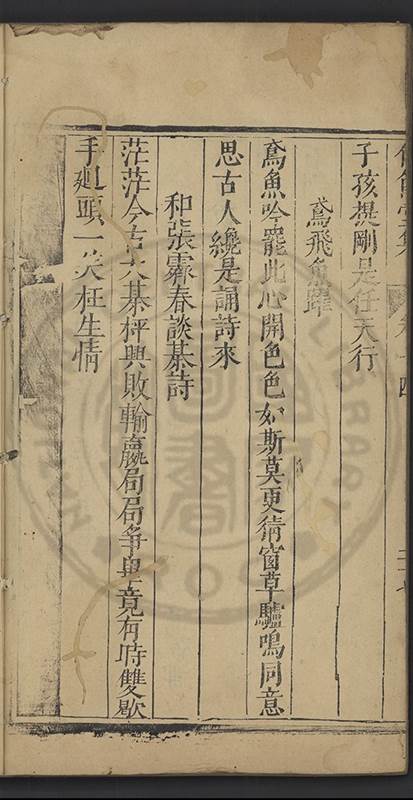 子孩提剛是任天行
鳶飛魚躍
鳶魚吟罷此心開色色如斯莫更猜窗草驢鳴同意
思古人纔是誦詩來
和張霽春談棊詩
茫茫今古大棊枰興敗輸嬴局局爭畢竟有時雙歇
手廻頭一笑枉生情